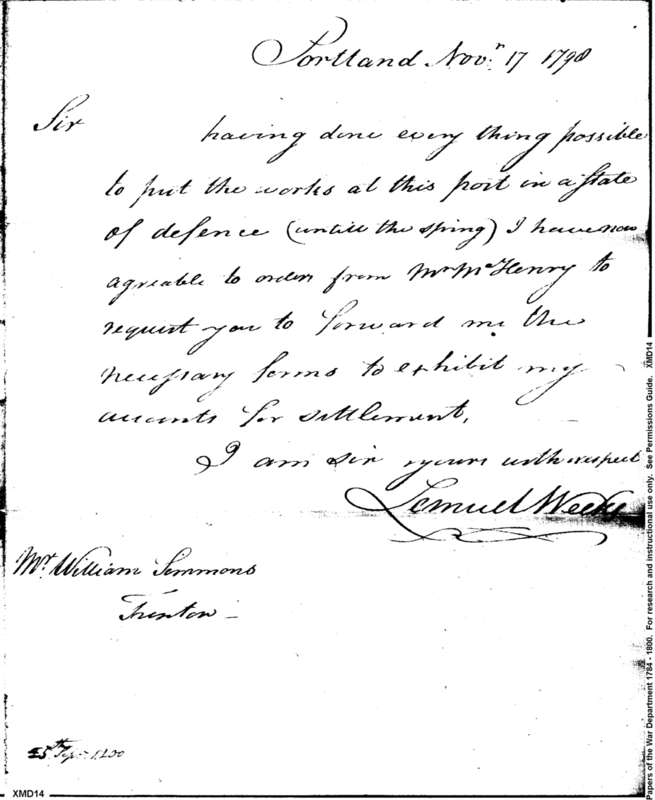 Portland Nov.r 17 1798
Sir having done every thing possible
to put the works at this post in a state
of defence (untill the spring) I have now
agreable to orders from Mr McHenry to
request you to forward me the
necessary forms to exhibit my
accounts for settlement.
I am sir yours with respect
Lemuel Weeks
Mr. William Simmons
Trenton
XMD14
Papers of the War Department 1784 - 1800. For research and instructional use only. See Permissions Guide. XMD14